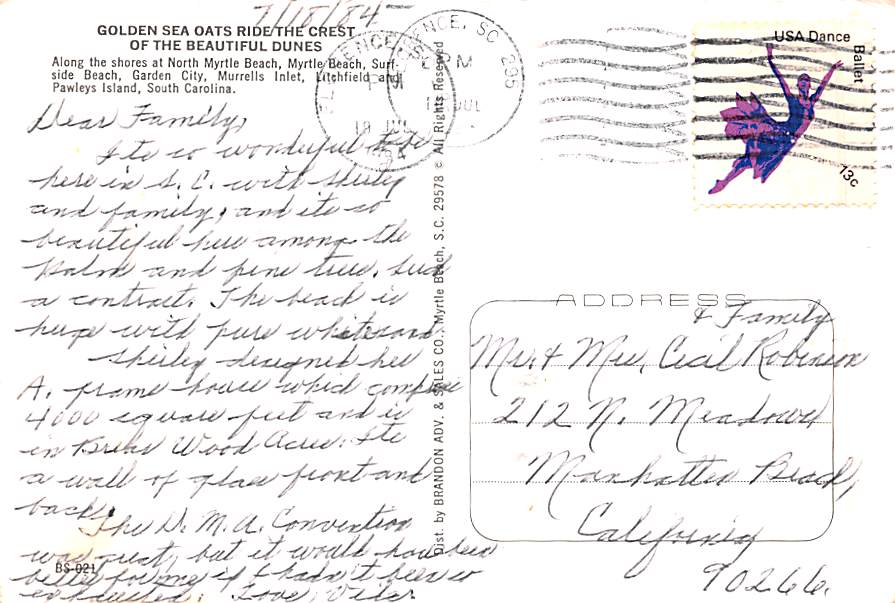 7/18/84
GOLDEN SEA OATS RIDE THE CREST
OF THE BEAUTIFUL DUNES
Along the shores at North Myrtle Beach, Myrtle Beach, Surf-
side Beach, Garden City, Murrells Inlet, Litchfield and
Pawleys Island, South Carolina.
Dear Family,
Its so wonderful to be
here in S. C. with Shirley
and family, and its so
beautiful here among the
Palm and pine trees. Such
a contrast. The beach is
huge with pure white sand.
Shirley designed her
A. frame house which comprise
4000 square feet and is
in Briar Wood Acres. Its
a wall of glass front and
back.
The D. M. A. Convention
was great, but it would have been
better for me if I hadn't been so
exhausted. Love,
BS-021
Dist. by BRANDON ADV. & SALES CO., Myrtle Beach, S.C. 29578 © All Rights Reserved
FLORENCE, SC
PM
18 JUL
FLORENCE, SC 295
PM
18 JUL
USA Dance
Ballet
13c
ADDRESS
& Family
Mr. & Mrs. Cecil Robinson
212 N. Meadows
Manhattan Beach,
California
90266.